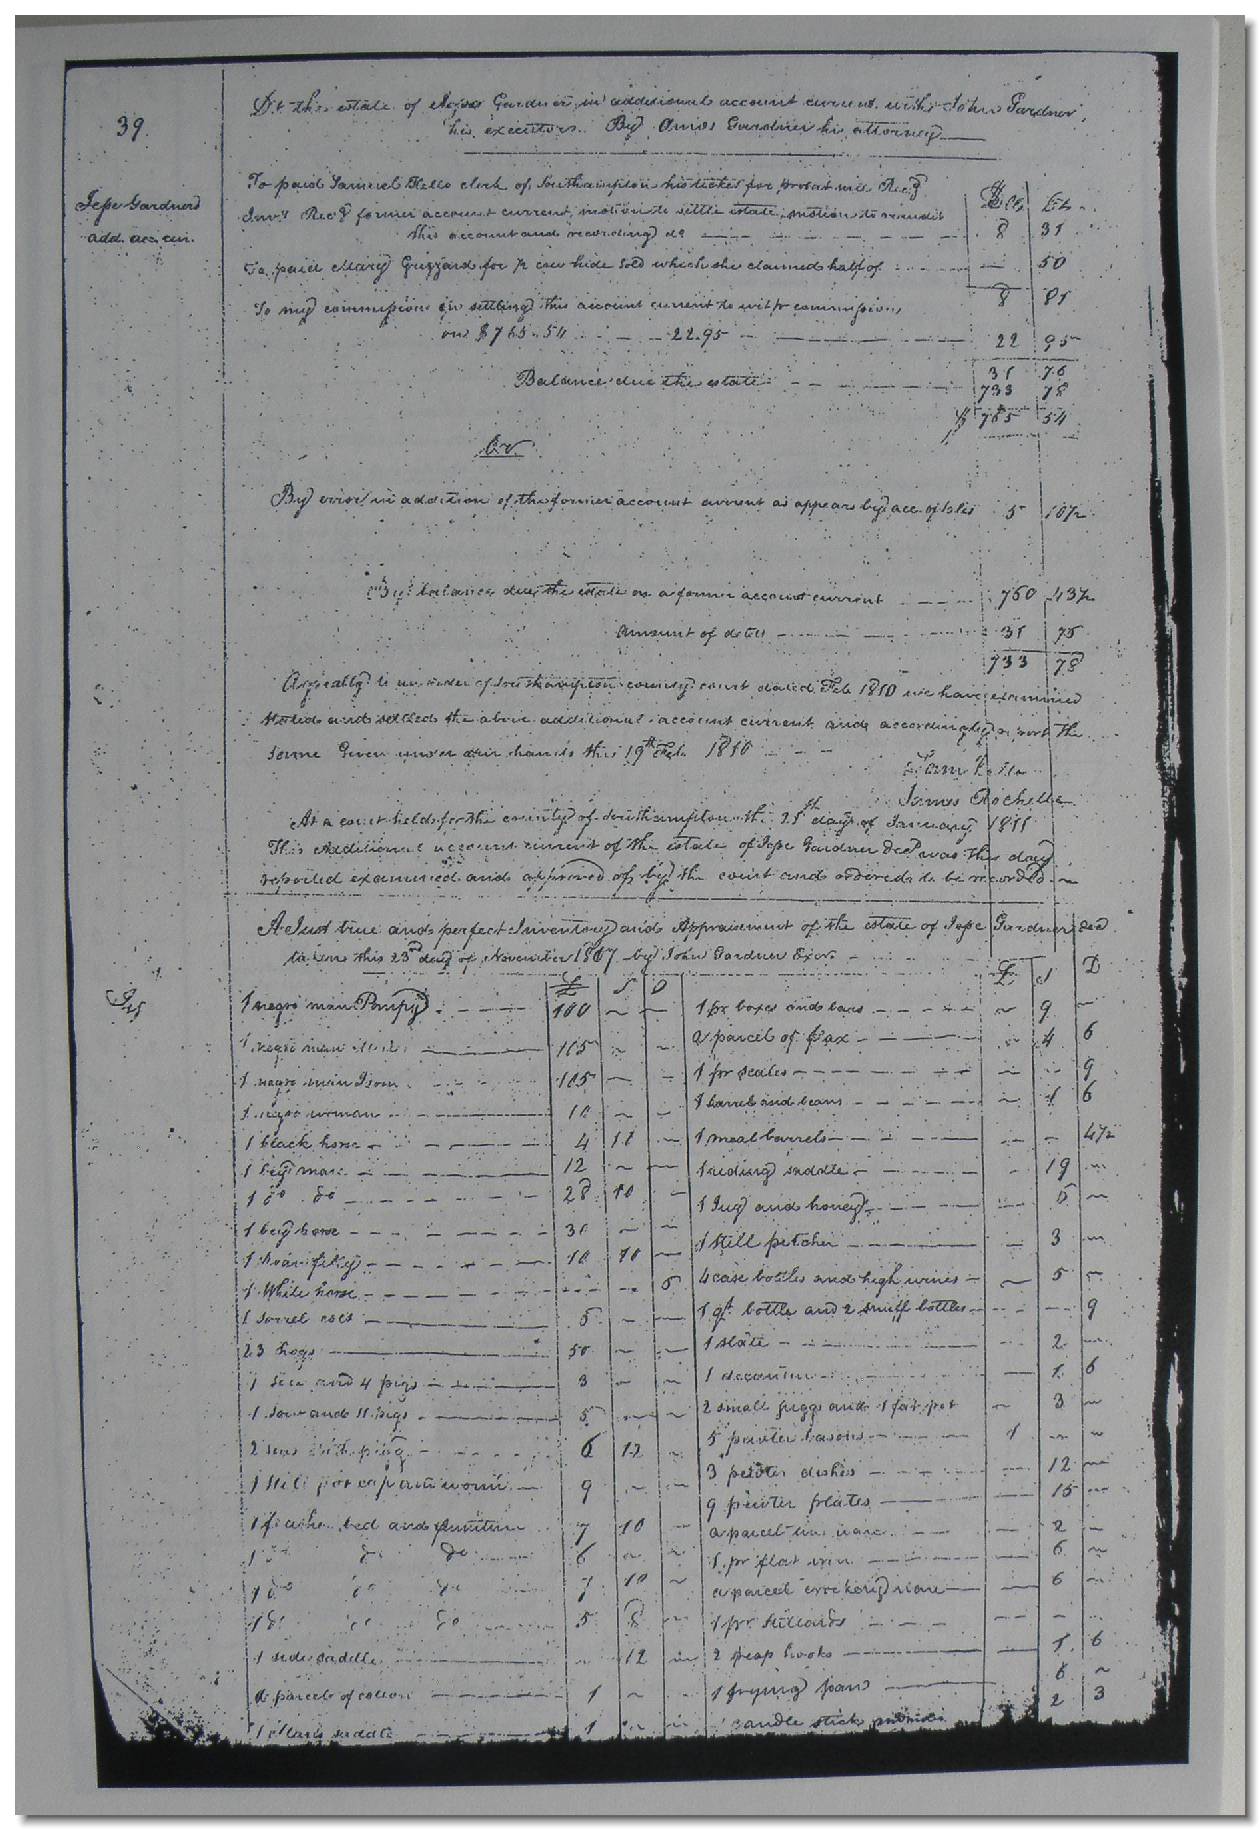 39.
Jesse Gardners
add. acc. cur.
Dr. the estate of Jesse Gardner in additional account current with John Gardner
his executor. By Amos Gardner his attorney
To paid Samuel Kello clerk of Southampton his ticket for probat will Recg
Invy Recg former account current, motion to settle estate, motion to
this account and recording do 8 31
$ Cts
To paid Mary Grizzard for ½ cow hide sold which she claimed half of 50
8 81
To my commission on settling this account current to wit pr commission
on $765.54 22.95 22 95
31 76
Balance due the estate 733 78
$ 765 54
Cr.
By in addition of the former account current as appears by acc. of Sales 5 10½
By balance due the estate on a former account current 760 43½
Amount of debts 31 75
733 78
Agreably to an order of Southampton county court dated Feb 1810 we have examined
stated and settled the above additional account current and accordingly report the
same Given under our hands this 19th Feb 1810
Sam Kello
James Rochelle
At a court held for the county of Southampton the 21st day of January 1811
This Additional account current of the estate of Jesse Gardner decd was this day
reported examined and approved of by the court and ordered to be recorded
A Just true and perfect Inventory and Appraisement of the estate of Jesse Gardner decd
taken this 23rd day of November 1807 by John Gardner Exor.
£ S D
£ S D
1 negro man Pompy 100
1 negro man 105
1 negro man Isom 105
1 negro woman 10
1 black horse 4 11
1 bay mare 12
1 do do 28 10
1 bay horse 30
1 roan filley 10 10
1 White horse 6
1 sorrel colt 6
23 hogs 50
1 sow and 4 pigs 3
1 sow and 11 pigs 5
2 sows with pig 6 12
1 Still pot cap and worm 9
1 feather bed and furniture 7 10
1 do do do 6
1 do do do 7 10
1 do do do 5 8
1 side saddle 12
a parcel of cotton 1
1 saddle 1
1 pr boxes and bars 9
a parcel of flax 4 6
1 pr scales 9
1 barrel and beans 1 6
1 meal barrels 4½
1 riding saddle 19
1 Jug and honey 6
1 still pitcher 3
4 case bottles and high wines 5
1 qt bottle and 2 snuff bottles 9
1 slate 2
1 decanter 1 6
2 small juggs and 1 fat pot 3
5 pewter basons 1
3 pewter dishes 12
9 pewter plates 15
a parcel tin ware 2
1 pr flat iron 6
a parcel crockery ware 6
1 pr stillards
2 reap hooks 1 6
1 frying pan 6
candle stick 2 3